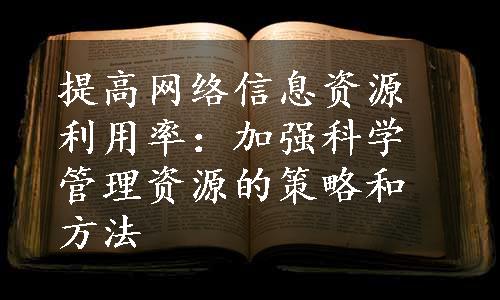 提高网络信息资源
利用率：加强科学
管理资源的策略和
方法